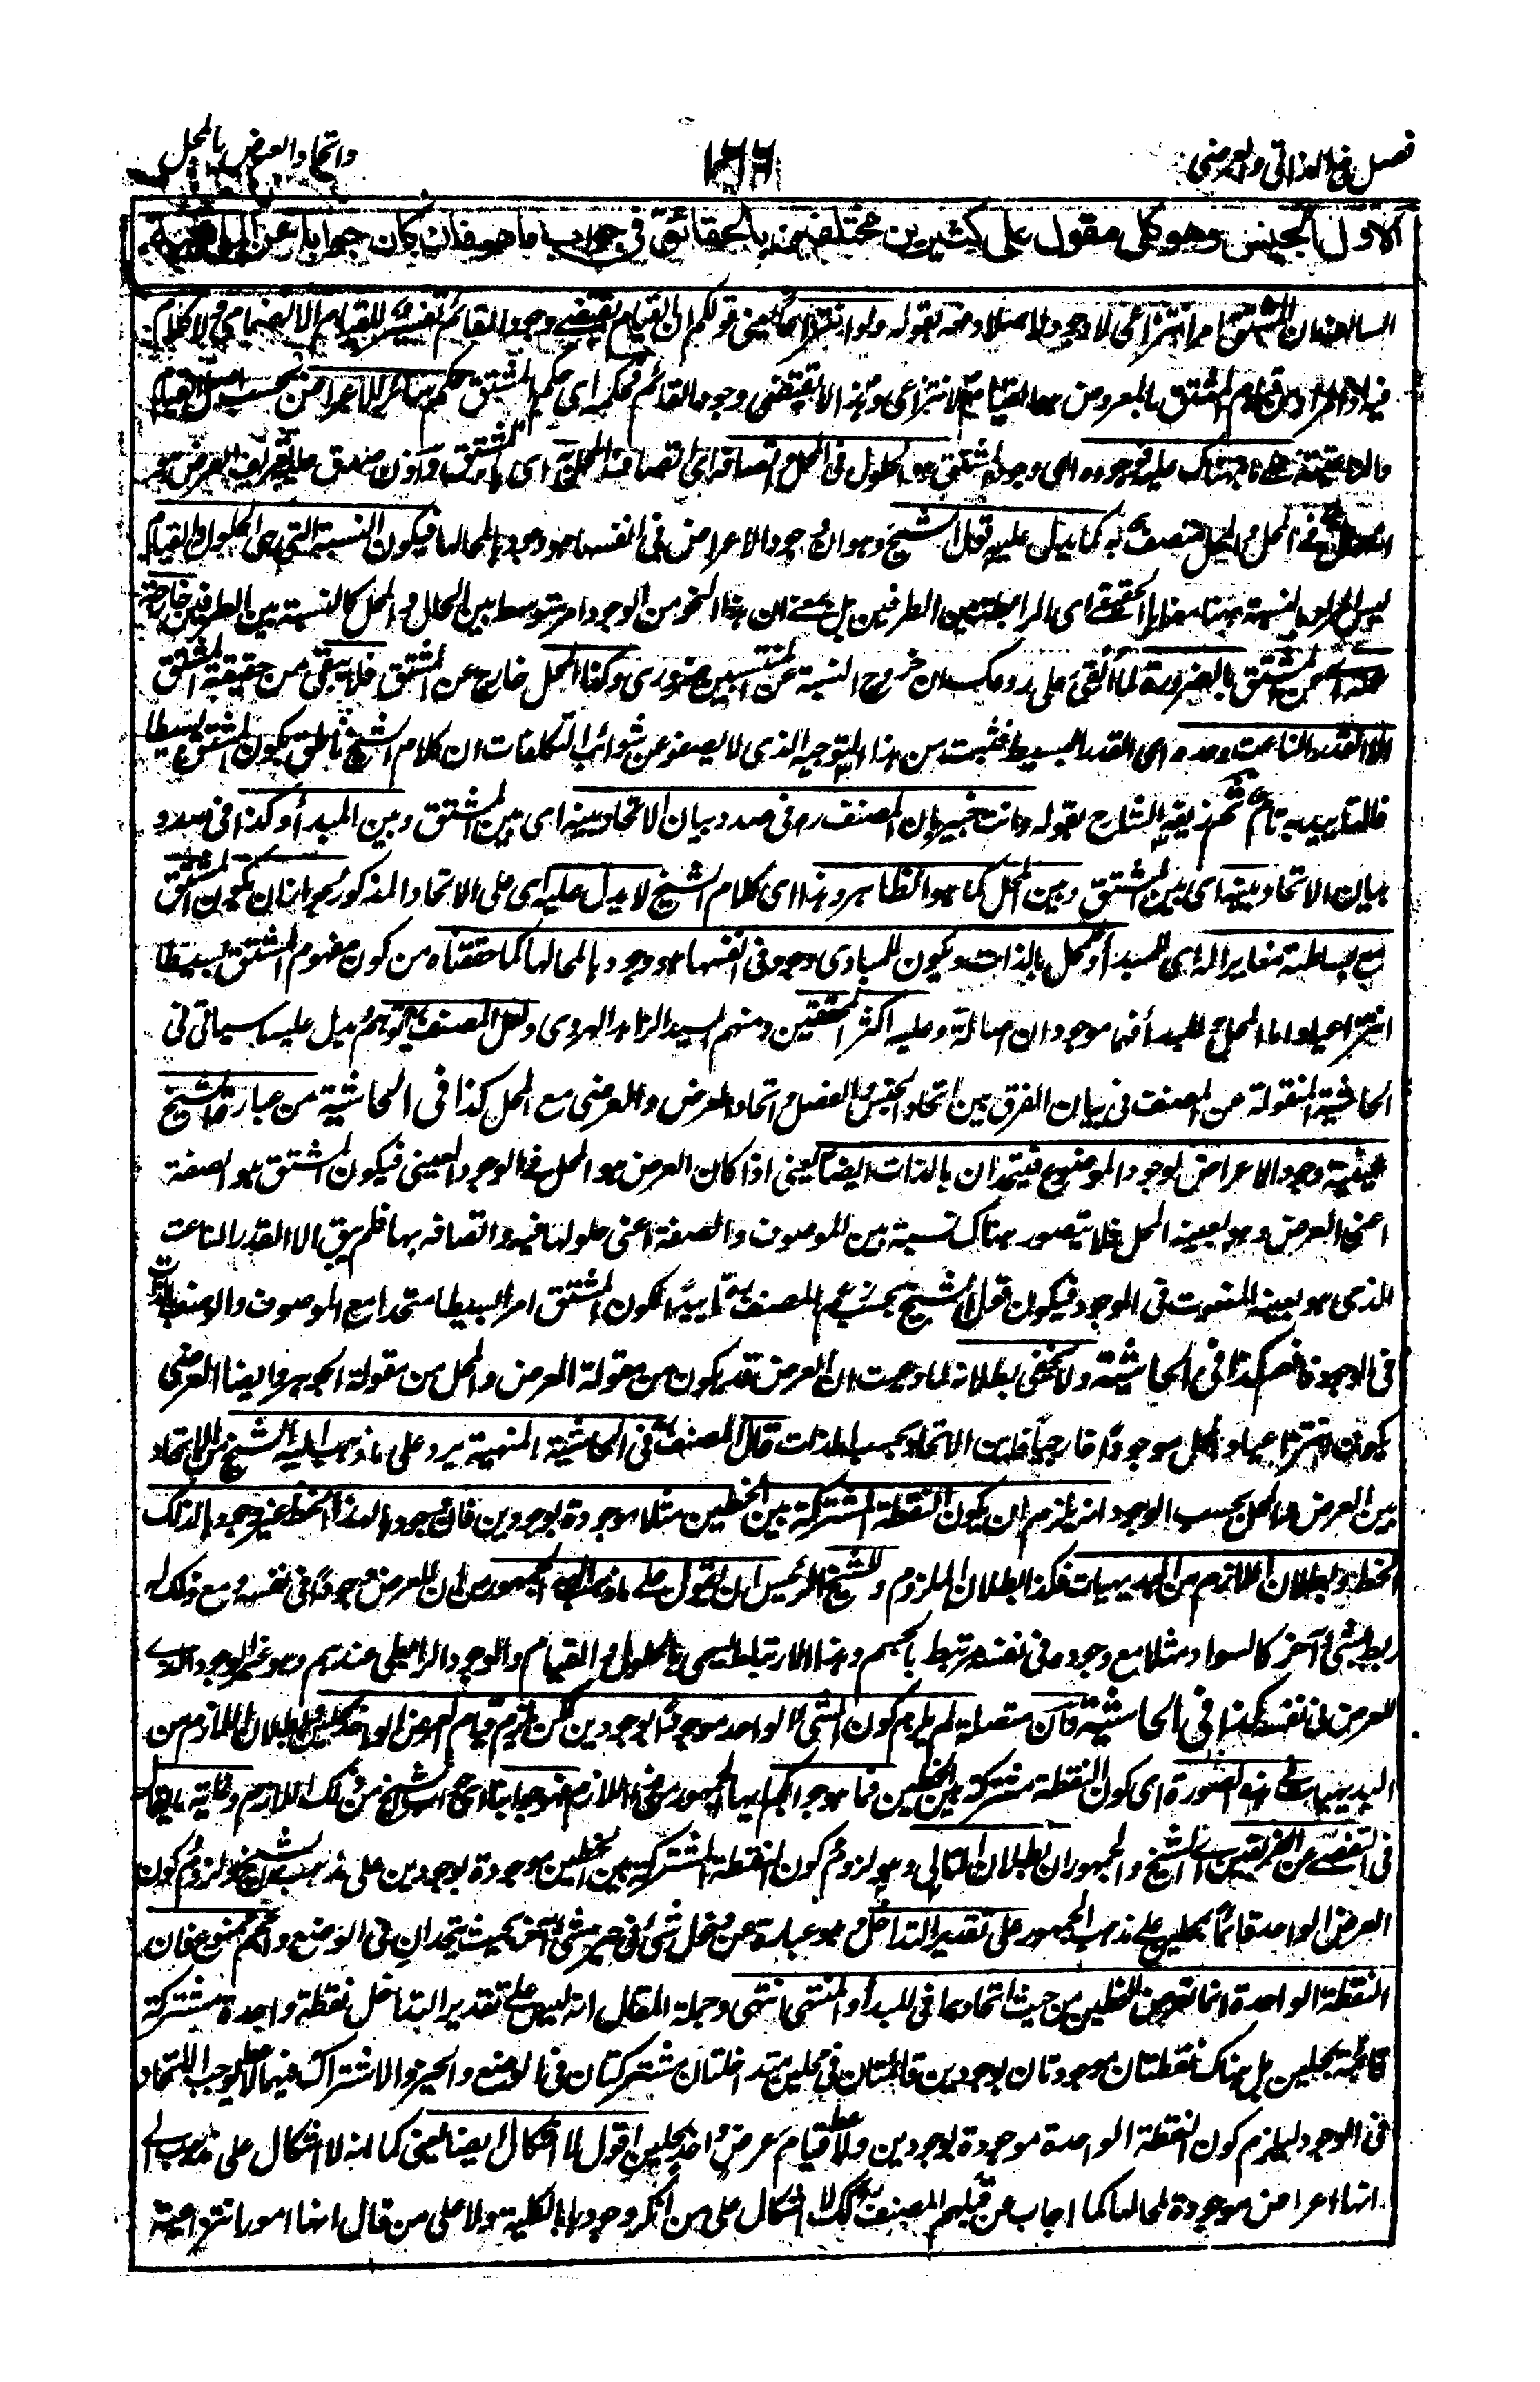 فصل في الذاتي والعرضي
١٦٦
واتحاد العرض بالمحل
الاول الجنس وهو كلي مقول على كثيرين مختلفين بالحقائق في جواب ما هو فان كان جوابا عن الماهية
ان المشتق امر انتزاعي لا وجود له اصلا دفعه بقوله ولو انتزاعا يعني قولكم ان القيام يقتضي وجود القائم للقيام الانضمامي لا كلام
فيه المراد من قيام المشتق بالمعروض القيام الانتزاعي وهذا لا يقتضي وجود القائم فحكمه اي حكم المشتق حكم سائر الاعراض بحسب القيام
هناك فوجوده اي وجود المشتق هو الحلول في المحل واتصافه اي اتصاف المحل به اي بالمشتق صدق عليه تعريف العرض
في المحل والمحل متصف به كما يدل عليه قول الشيخ وهو ان وجود الاعراض في انفسها هو وجودها لمحالها فيكون النسبة التي هي الحلول والقيام
ليس المراد بالنسبة ههنا معناها الحقيقي اي الرابطة بين الطرفين بل معنى ان هذا النحو من الوجود امر متوسط بين الحال والمحل كالنسبة بين الطرفين خارجة
عن المشتق بالضرورة لما القي على روعك ان خروج النسبة عن المنتسبين ضروري وكذا المحل خارج عن المشتق فلا يبقى من حقيقة المشتق
الا القدر الناعت وحده اي القدر البسيط فثبت من هذا التوجيه الذي لا يصفو عن شوائب التكلفات ان كلام الشيخ ناطق بكون المشتق بسيطا
فالتاييد به تام ثم زيفه الشارح بقوله وانت خبير بان المصنف رح في صدد بيان الاتحاد بينه اي بين المشتق وبين المبدأ وكذا في صدد
بيان الاتحاد بينه اي بين المشتق وبين المحل كما هو الظاهر وهذا اي كلام الشيخ لا يدل عليه اي على الاتحاد المذكور لجواز ان يكون المشتق
مع بساطته مغايرا له اي للمبدأ وللمحل بالذات ويكون للمبادي وجود في انفسها هو وجودها لمحالها كما حققناه من كون مفهوم المشتق بسيطا
انتزاعيا واما المحل والمبدأ فهما موجودان اصالة وعليه اكثر المحققين ومنهم السيد الزاهد الهروي ولعل المصنف توهم يدل عليه ما سياتي في
الحاشية المنقولة عن المصنف في بيان الفرق بين اتحاد الجنس والفصل واتحاد العرض والعرضي مع المحل كذا في الحاشية من عبارة الشيخ
عينية وجود الاعراض لوجود الموضوع فيتحدان بالذات ايضا يعني اذا كان العرض هو المحل في الوجود العيني فيكون المشتق هو الصفة
اعني العرض وهو بعينه المحل فلا يتصور هناك نسبة بين الموصوف والصفة اعني حلولها فيه واتصافه بها فلم يبق الا القدر الناعت
الذي هو بعينه المنعوت في الوجود فيكون قول الشيخ بحسب زعم المصنف رح تاييدا لكون المشتق امرا بسيطا متحدا مع الموصوف والوصف بالذات
في الوجود فافهم كذا في الحاشية ولا يخفى بطلانه لما دريت ان العرض قد يكون من مقولة العرض والمحل من مقولة الجوهر وايضا العرضي
يكون انتزاعيا والمحل موجودا خارجيا فاين الاتحاد بحسب الذات قال المصنف رح في الحاشية المنهية يرد على ما ذهب اليه الشيخ من الاتحاد
بين العرض والمحل بحسب الوجود انه يلزم ان يكون النقطة المشتركة بين الخطين مثلا موجودة بوجودين فان وجودها لهذا الخط غير وجودها لذلك
الخط وبطلان اللازم من البديهيات فكذا بطلان الملزوم وللشيخ الرئيس ان يقول على ما ذهب اليه الجمهور من ان للعرض وجودا في نفسه ومع ذلك له
ربط بشئ آخر كالسواد مثلا مع وجوده في نفسه مرتبط بالجسم وهذا الارتباط يسمى بالحلول والقيام والوجود الرابطي عندهم وهو غير الوجود الذي
للعرض في نفسه كذا في الحاشية فان متصلة لم يلزم كون الشئ الواحد موجودا بوجودين لكن يلزم قيام العرض الواحد بمحلين وبطلان اللازم من
البديهيات في هذه الصورة اي كون النقطة مشتركة بين الخطين فما هو جوابكم ايها الجمهور عن هذا اللازم فهو جوابنا اي الشيخ عن ذلك اللازم وغاية ما يقال
في التفصي عن الفريقين اي الشيخ والجمهور ان بطلان التالي وهو لزوم كون النقطة المشتركة بين الخطين موجودة بوجودين على مذهب الشيخ ولزوم كون
العرض الواحد قائما بمحلين على مذهب الجمهور على تقدير التداخل وهو عبارة عن دخول شئ في حيز شئ آخر بحيث يتحدان في الوضع والحجم ممنوع فان
النقطة الواحدة انما تعرض الخطين من حيث اتحادهما في المبدأ والمنتهى انتهى وجملة المقال انه ليس على تقدير التداخل نقطة واحدة مشتركة
قائمة بمحلين بل هناك نقطتان موجودتان بوجودين قائمتان في محلين متداخلتان مشتركتان في الوضع والحيز والاشتراك فيهما لا يوجب الاتحاد
في الوجود ليلزم كون النقطة الواحدة موجودة بوجودين ولا قيام عرض واحد بمحلين اقول لا اشكال ايضا يعني كما انه لا اشكال على مذهب
انها اعراض موجودة لمحالها كما اجاب عن قبلهم المصنف رح كذلك لا اشكال على من انكر وجودها بالكلية ولا على من قال انها امور انتزاعية